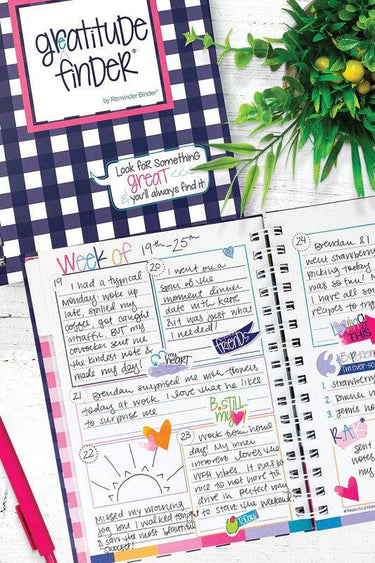 gratitude
finder®
by Reminder Binder®
Look for something
great
you'll always find it
Week of 19th-25th
19
I had a typical
Monday: woke up
late, spilled my
coffee, got caught
in traffic. BUT my
coworker sent me
the kindest note &
made my day!
my
heart
20
I went on a
spur of the
moment dinner
date with Kate
& it was just what
I needed!
friends
21
Brendan surprised me with flowers
today at work. I love that he likes
to surprise me.
B. STILL
my
22
Missed my morning
jog but I walked tonight
& saw the most beautiful
sunset!
23
Work from home
day! My inner
introvert loves the
WFH vibes. It was so
nice to not have to
drive in. Perfect way
to start the weekend
24
Brendan & I
went strawberry
picking today
was so fun!
I have all
recipes to
THIS
1. strawberry
2. Dinner
3. Jenn's note
sent
notes
my